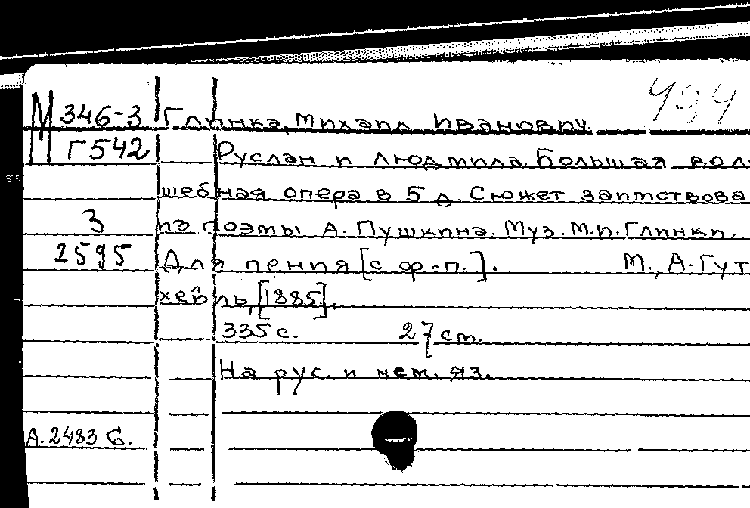 494
М 346-3 Глинка, Михаил Иванович.
Г 542 Руслан и Людмила. Большая вол-
шебная опера в 5 д. Сюжет заимствова
3 из поэмы А. Пушкина. Муз. М.И. Глинки.
2595 Для пения [с ф.-п.]. М., А. Гут
хейль, [1885].
335 с. 27 см.
На рус. и нем. яз.
А. 2483 С.